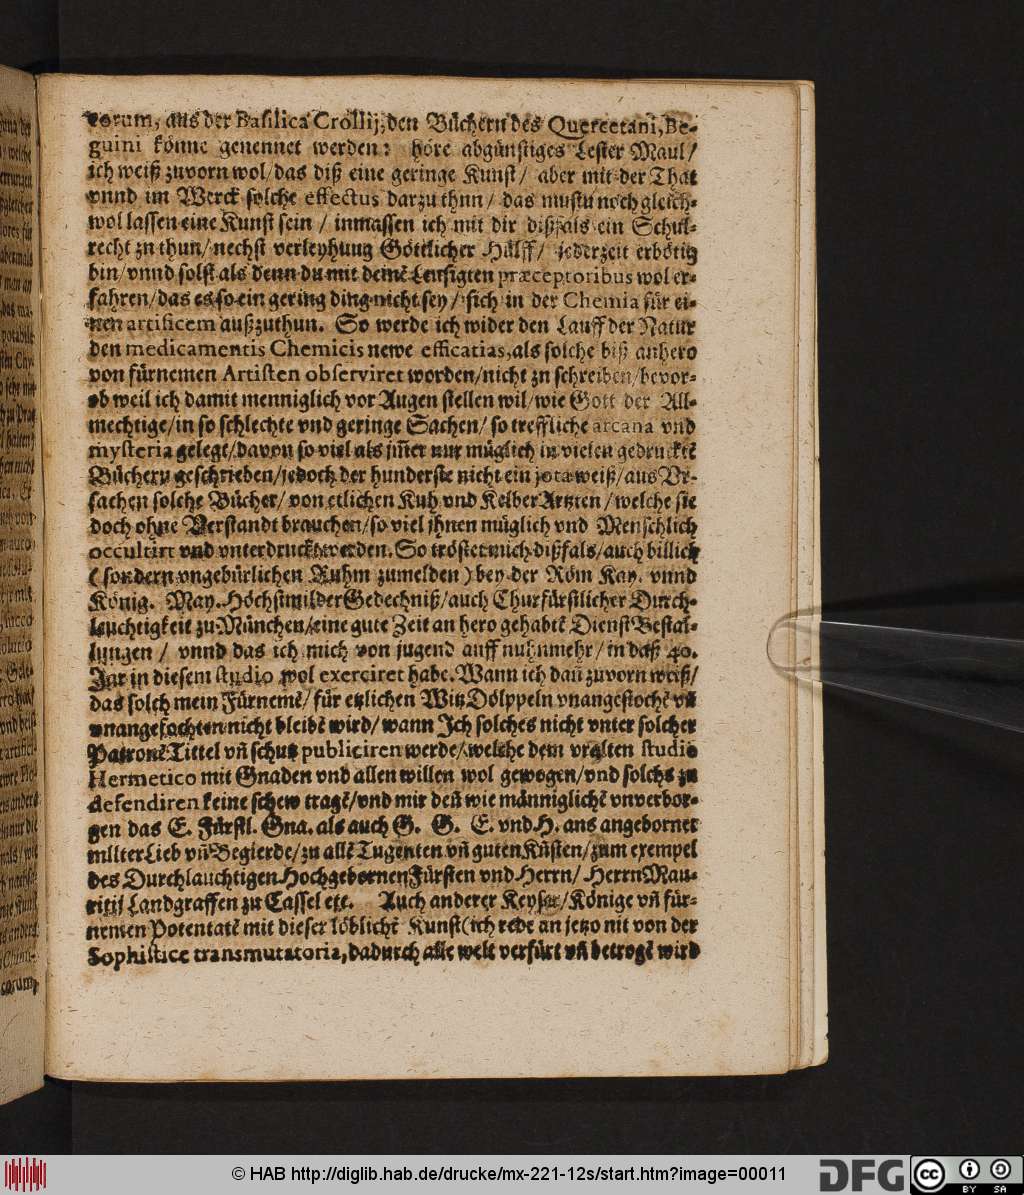 vorum, aus der Basilica Crollij, den Büchern des Quercetani, Be-
guini könne genennet werden: höre abgünstiges Lester Maul/
ich weiß zuvorn wol/das diß eine geringe Kunst/ aber mit der That
vnnd im Werck solche effectus darzu thun/ das mustu noch gleich-
wol lassen eine Kunst sein / inmassen ich mit dir dißfals ein Schul-
recht zu thun/nechst verleyhung Göttlicher Hülff/ jederzeit erbötig
bin/vnnd solst als denn du mit deinē Leusigten præceptoribus wol er-
fahren/das es so ein gering ding nicht sey/ sich in der Chemia für ei-
nen artificem außzuthun. So werde ich wider den Lauff der Natur
den medicamentis Chemicis newe efficatias, als solche biß anhero
von fürnemen Artisten observiret worden/nicht zu schreiben/bevor-
ob weil ich damit menniglich vor Augen stellen wil/wie Gott der All-
mechtige/in so schlechte vnd geringe Sachen/ so treffliche arcana vnd
mysteria gelegt/davon so viel als jm̃er nur müglich in vielen gedrucktē
Büchern geschrieben/jedoch der hunderste nicht ein jota weiß/aus Vr-
sachen solche Bücher/ von etlichen Kuh vnd Kelber Artzten /welche sie
doch ohne Verstandt brauchen/so viel jhnen müglich vnd Menschlich
occultirt vnd vnterdruckt werden. So tröstet mich dißfals/auch billich
(sondern vngebürlichen Ruhm zumelden) bey der Röm Kay. vnnd
König. May. Höchstmilder Gedechniß/auch Churfürstlicher Durch-
leuchtigkeit zu München/eine gute Zeit an hero gehabtē Dienst Bestal-
lungen / vnnd das ich mich von jugend auff nuhnmehr/in daß 40.
Jar in diesem studio wol exerciret habe. Wann ich dañ zuvorn weiß/
das solch mein Fürnemē/ für etlichen Witz Dölppeln vnangestochē vñ
vnangefochten nicht bleibē wird/wann Jch solches nicht vnter solcher
Patronē Tittel vñ schutz publiciren werde/welche dem vralten studio
Hermetico mit Gnaden vnd allen willen wol gewogen/vnd solchs zu
defendiren keine schew tragē/vnd mir deñ wie männiglichē vnverbor-
gen das E. Fürstl. Gna. als auch G. G. E. vnd H. ans angeborner
milter Lieb vñ Begierde/zu allē Tugenten vñ guten Künsten/zum exempel
des Durchlauchtigen Hochgebornen Fürsten vnd Herrn/ Herrn Mau-
ritij Landgraffen zu Cassel etc. Auch anderer Keyser/Könige vñ für-
nemen Potentatē mit dieser löblichē Kunst (ich rede an jetzo nit von der
Sophistice transmutatoria, dadurch alle welt verfürt vñ betrogē wird
© HAB http://diglib.hab.de/drucke/mx-221-12s/start.htm?image=00011
DFG
cc
BY SA